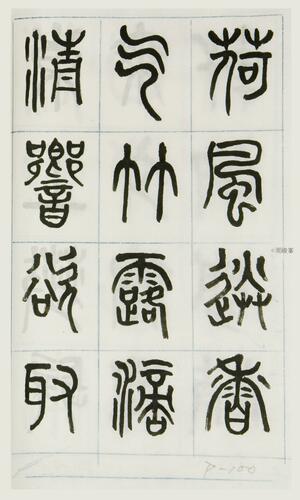 荷風送香
气竹露滴
清響欲取
P-100